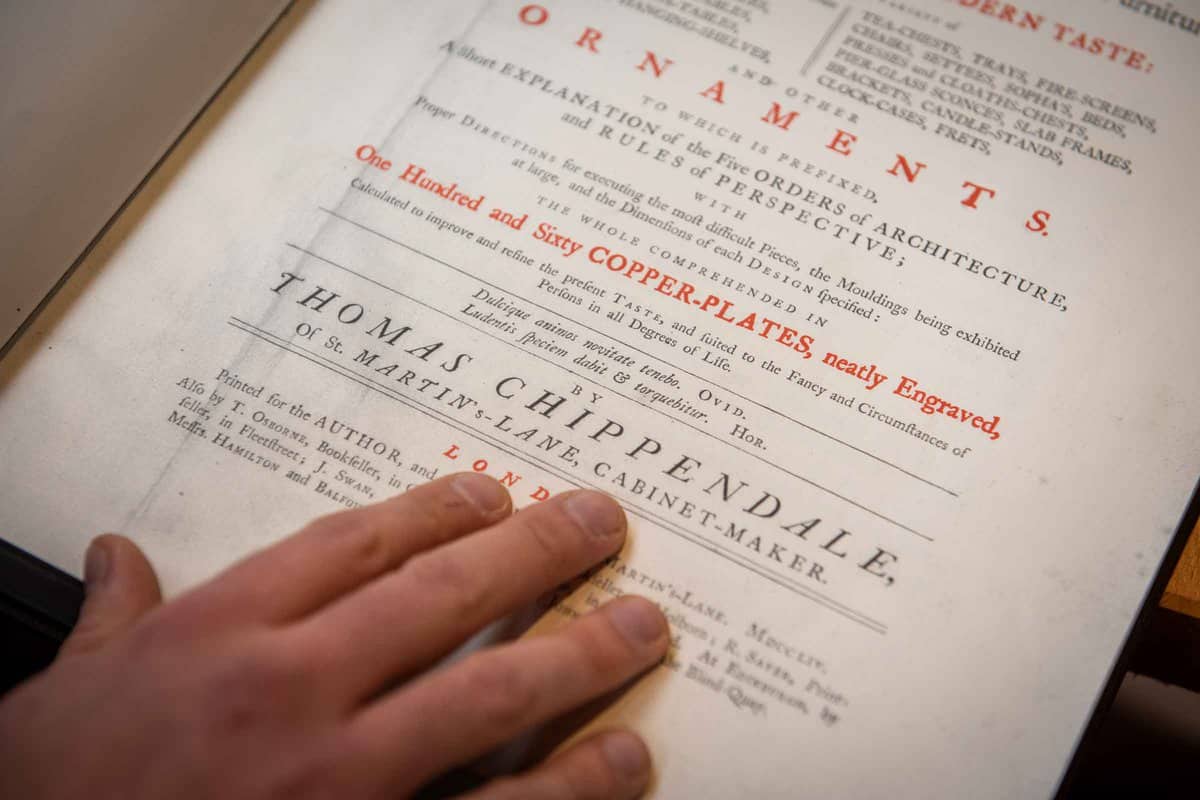 DERN TASTE:
HANGING-SHELVES,
TEA-CHESTS, TRAYS, FIRE-SCREENS,
CHAIRS, SETTEES, SOPHA'S, BEDS,
PRESSES and CLOATHS-CHESTS,
PIER-GLASS SCONCES, SLAB FRAMES,
BRACKETS, CANDLE-STANDS,
CLOCK-CASES, FRETS,
AND OTHER
ORNAMENTS.
TO WHICH IS PREFIXED,
A ſhort EXPLANATION of the Five ORDERS of ARCHITECTURE,
and RULES of PERSPECTIVE;
WITH
Proper DIRECTIONS for executing the moſt difficult Pieces, the Mouldings being exhibited
at large, and the Dimenſions of each DESIGN ſpecified:
THE WHOLE COMPREHENDED IN
One Hundred and Sixty COPPER-PLATES, neatly Engraved,
Calculated to improve and refine the preſent TASTE, and ſuited to the Fancy and Circumſtances of
Perſons in all Degrees of Life.
Dulcique animos novitate tenebo. OVID.
Ludentis ſpeciem dabit & torquebitur. HOR.
BY
THOMAS CHIPPENDALE,
Of St. MARTIN's-LANE, CABINET-MAKER.
LOND
Printed for the AUTHOR, and MARTIN'S-LANE. MDCCLIV.
Alſo by T. OSBORNE, Bookſeller, in R. SAYER, Print-
ſeller, in Fleetſtreet; J. SWAN, At EDINBURGH, by
Meſſrs. HAMILTON and BALFOU